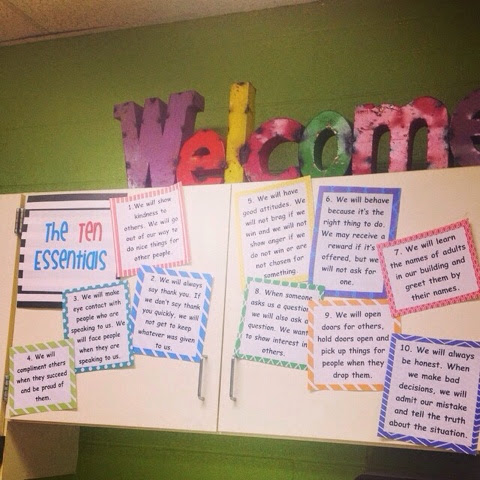 Welcome
The Ten
Essentials
1. We will show
kindness to
others. We will go
out of our way to
do nice things for
other people.
2. We will always
say thank you. If
we don't say thank
you quickly, we will
not get to keep
whatever was given
to us.
3. We will make
eye contact with
people who are
speaking to us. We
will face people
when they are
speaking to us.
4. We will
compliment others
when they succeed
and be proud of
them.
5. We will have
good attitudes. We
will not brag if we
win and we will not
show anger if we
do not win or are
not chosen for
something
6. We will behave
because it's the
right thing to do.
We may receive a
reward if it's
offered, but we
will not ask for
one.
7. We will learn
the names of adults
in our building and
greet them by
their names.
8. When someone
asks us a question
we will also ask a
question. We want
to show interest in
others.
9. We will open
doors for others,
hold doors open and
pick up things for
people when they
drop them.
10. We will always
be honest. When
we make bad
decisions, we will
admit our mistake
and tell the truth
about the situation.